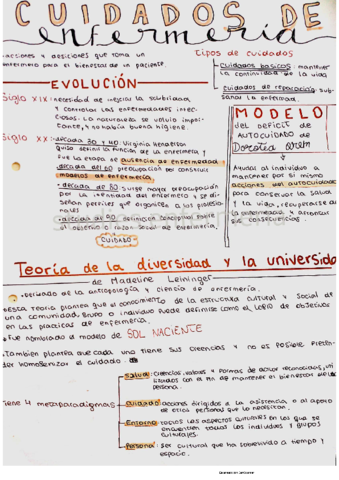 CUIDADOS DE
enfermería
acciones y decisiones que toma un
enfermero para el bienestar de un paciente.
Tipos de cuidados
cuidados básicos: mantener
la continuidad de la vida
cuidados de reparación: sub-
sanar la enfermedad.
EVOLUCIÓN
Siglo XIX: necesidad de mejorar la salubridad
y controlar las enfermedades infec-
ciosas. La naturaleza se volvió impor-
tante, y no había buena higiene.
Siglo XX: década 30 y 40 Virginia Henderson
quiso definir la función de la enfermera, y
fue la etapa de ausencia de enfermedad.
década del 60 preocupación por construir
modelos de enfermería.
por la identidad del enfermero y se di-
señan perfiles que orientan a los profesio-
nales
definición conceptual sobre
el objetivo o razón social de enfermería.
CUIDADO
MODELO
del déficit de
autocuidado de
Dorotea Orem
Ayuda al individuo a
mantener por sí mismo
acciones del autocuidado
para conservar la salud
y la vida, recuperarse de
la enfermedad y afrontar
sus consecuencias.
Teoría de la diversidad y la universid
de Madeline Leininger
Derivado de la antropología y ciencia de enfermería.
esta teoría plantea que el conocimiento de la estructura cultural y social de
una comunidad, grupo o individuo puede definirse como el logro de objetivos
en las prácticas de enfermería.
Fue nombrado el modelo de SOL NACIENTE
También plantea que cada uno tiene sus creencias y no es posible preten-
der homogeneizar el cuidado.
iene 4 metaparadigmas
Salud: creencias, valores y formas de actuar reconocidas, uti-
lizados con el fin de mantener el bienestar
Cuidado: acciones dirigidas a la asistencia o al apoyo
de otras personas que lo necesitan.
Entorno: todos los aspectos culturales en los que se
encuentran todos los individuos y grupos
culturales.
Persona: ser cultural que ha sobrevivido a tiempo y
espacio.